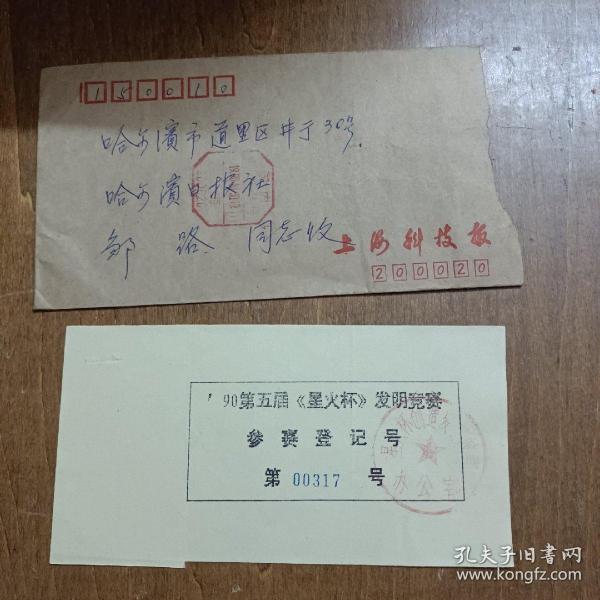 150010
哈尔滨市道里区井子30号
哈尔滨日报社
邹路 同志收
上海科技报
200020
'90第五届《星火杯》发明竞赛
参赛登记号
第 00317 号
办公室
孔夫子旧书网
www.kongfz.com